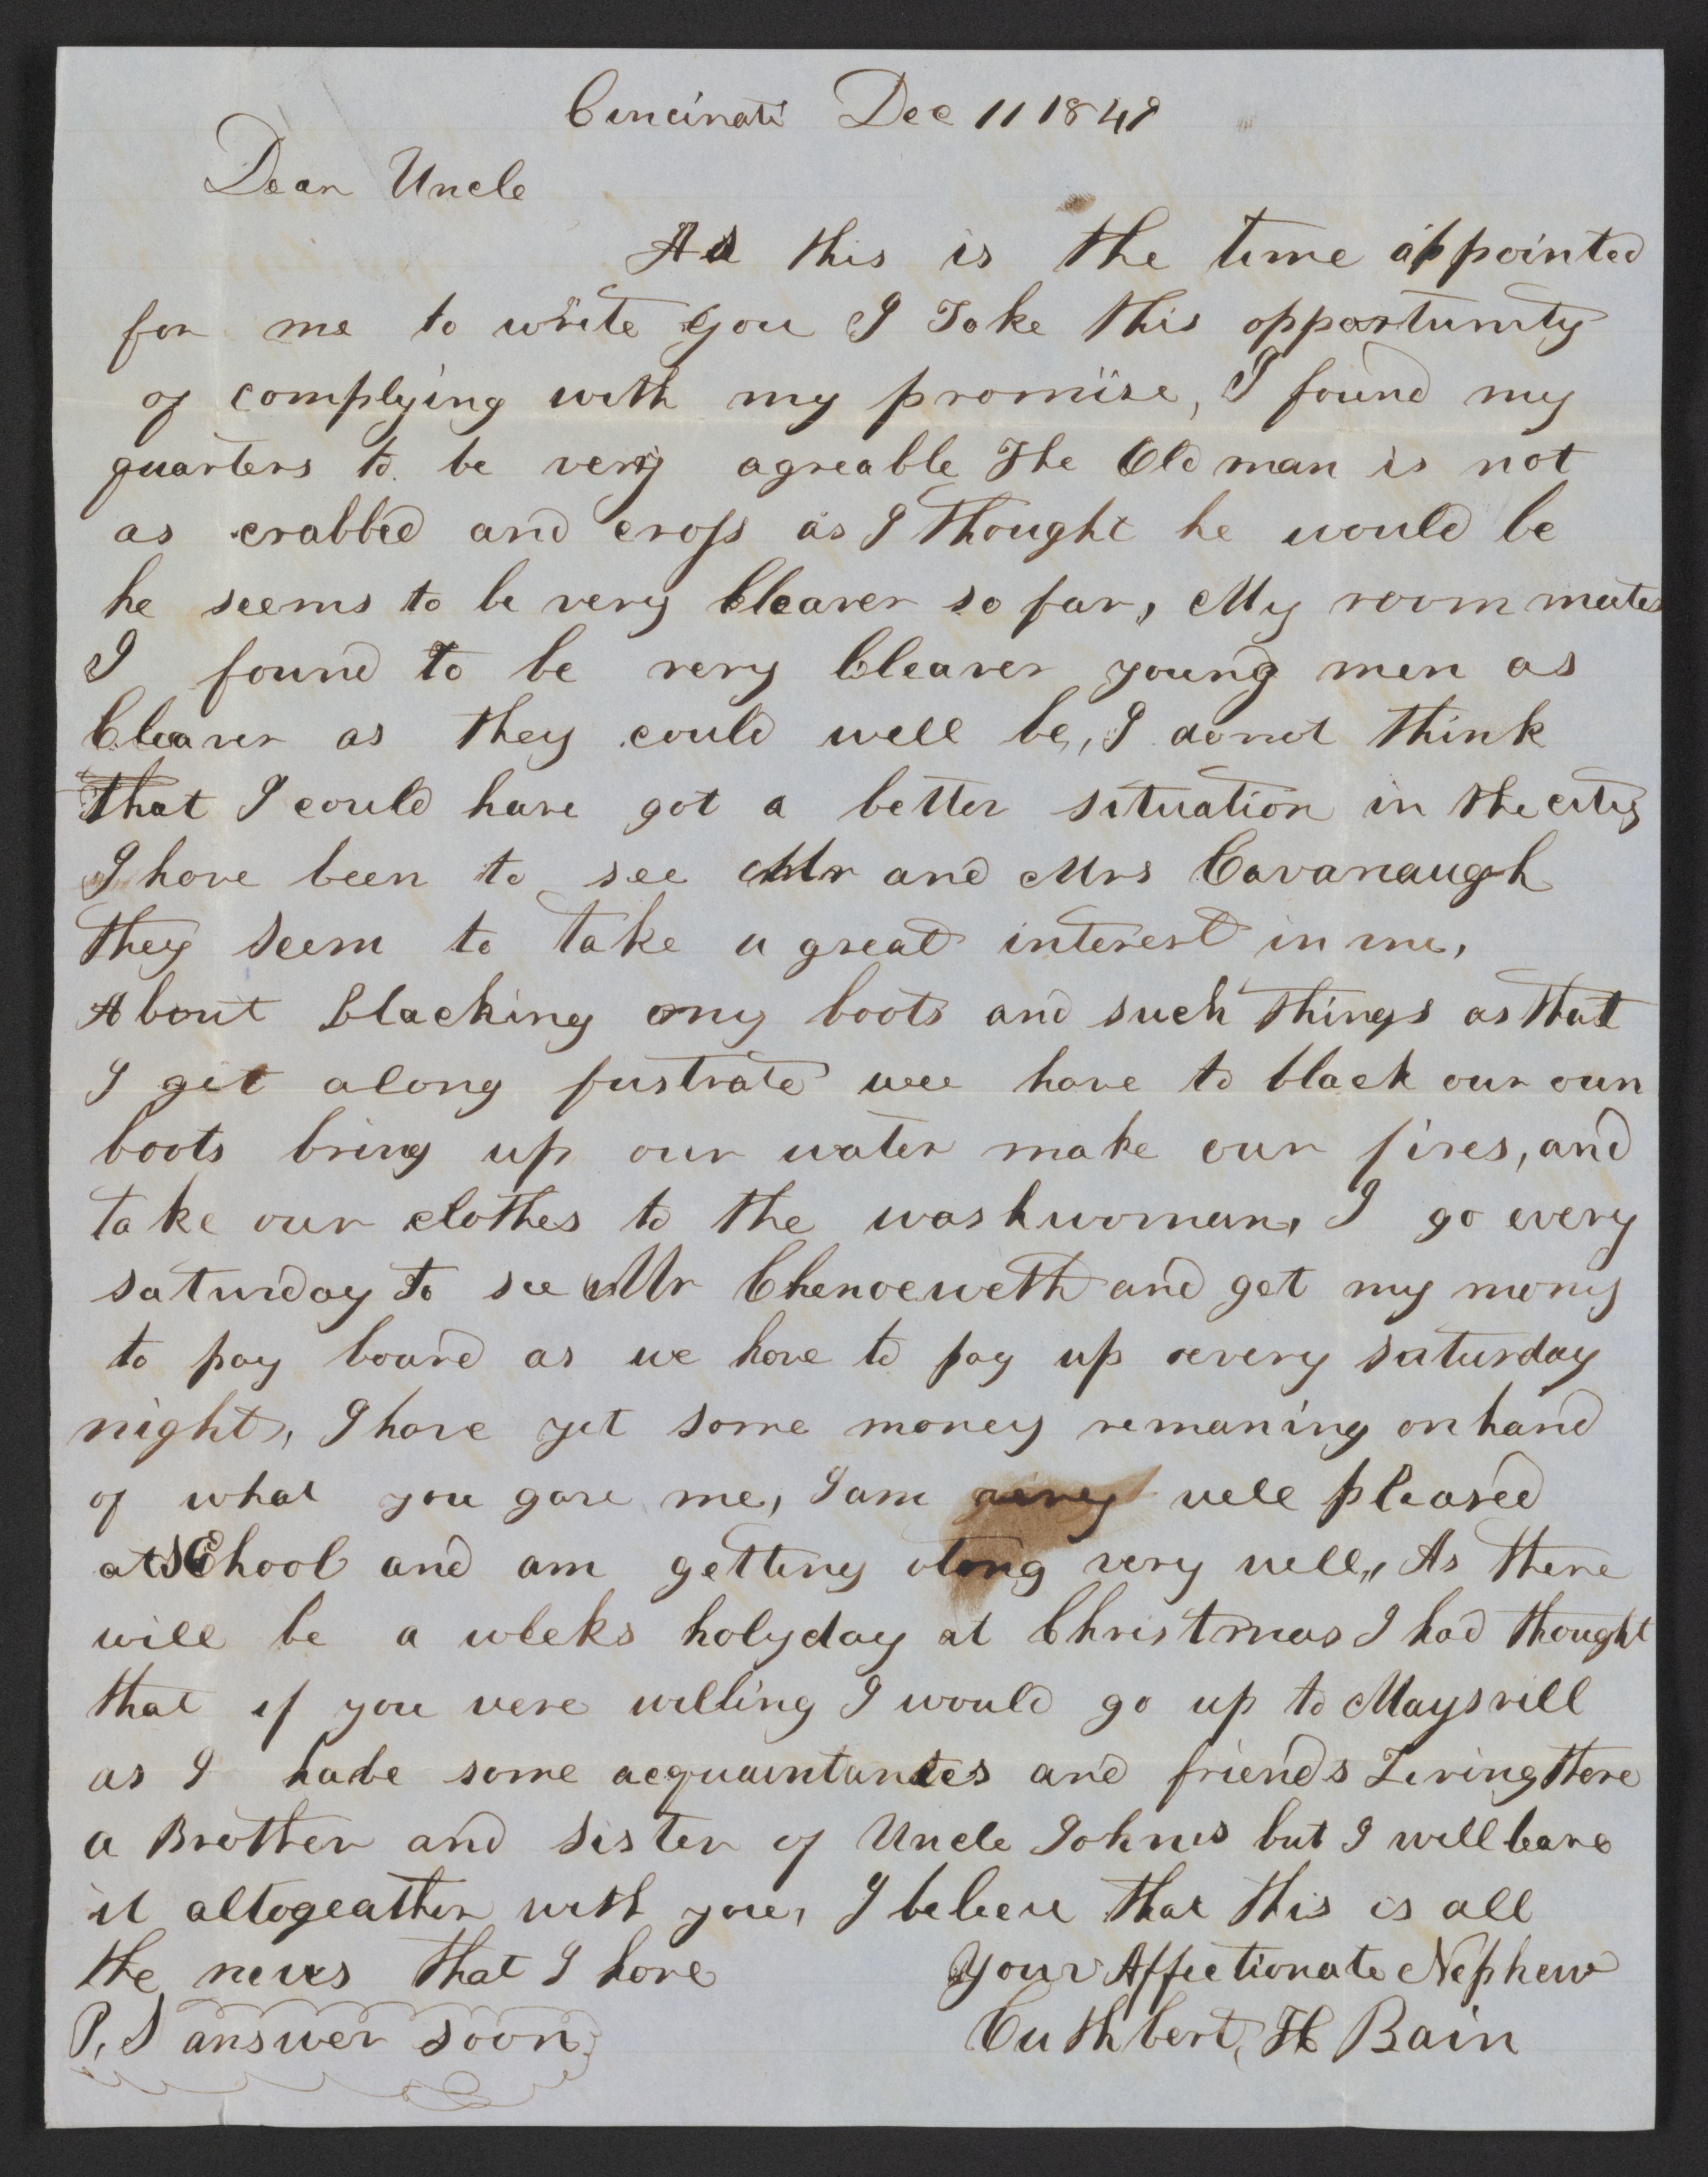 Cincinati Dec 11 1849
Dear Uncle
As this is the time appointed
for me to write you I Take this opportunity
of complying with my promise, I found my
quarters to be very agreable The Old man is not
as crabbed and cross as I thought he would be
he seems to be very Cleaver so far, My room mates
I found to be very Cleaver young men as
Cleaver as they could well be, I donot think
that I could have got a better situation in the city
I have been to see Mr and Mrs Cavanaugh
they seem to take a great interest in me,
About blacking my boots and such things as that
I get along fustrate wee have to black our oun
boots bring up our water make our fires, and
take our clothes to the washwoman, I go every
saturday to see Mr Chenoeweth and get my mony
to pay board as we have to pay up every saturday
night, I have yet some money remaning on hand
of what you gave me, I am very well pleased
at school and am getting along very well,, As there
will be a weeks holyday at Christmas I had thought
that if you were willing I would go up to Maysvill
as I have some acquaintances and friends Living there
a Brother and sister of Uncle Johns but I will leave
it altogeather with you, I beleeve that this is all
the news that I have your Affectionate Nephew
P, S answer soon Cuthbert, H Bain